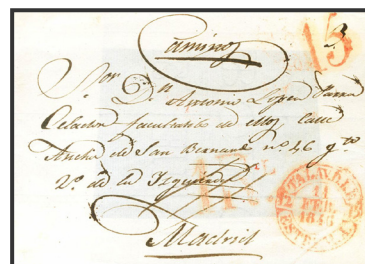 Caminos
15
Sor Dn Antonio Lopez Parra
Celador facultativo de ellos Calle
Ancha de San Bernardo no. 46 qto
2o. de la Izquierda
Madrid
TALAVERA
11
FEB
1846